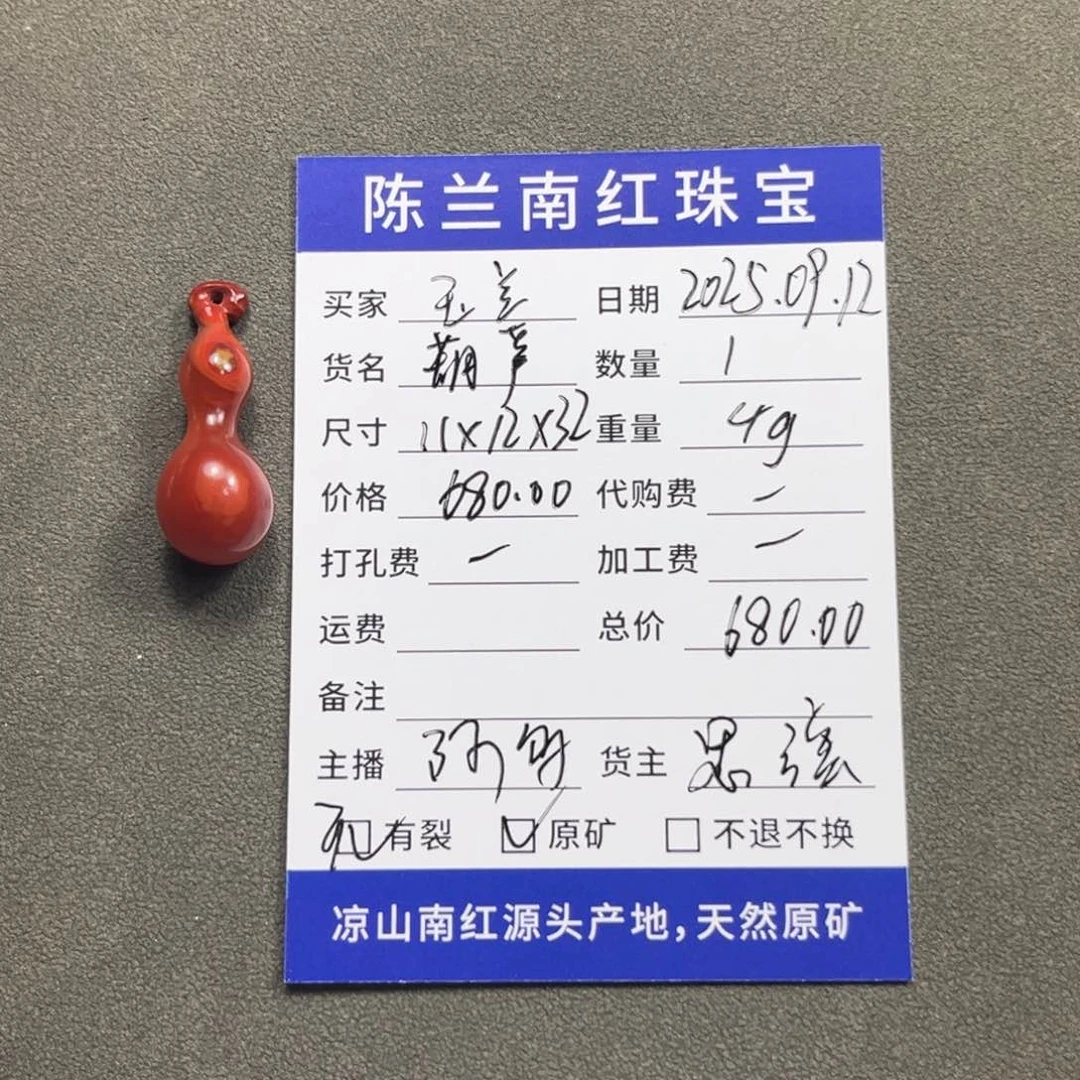 陈兰南红珠宝
买家 玉兰 日期 2025.09.12
货名 葫芦 数量 1
尺寸 11×12×32 重量 4g
价格 680.00 代购费 -
打孔费 - 加工费 -
运费 总价 680.00
备注
主播 阿 货主
有裂 原矿 不退不换
凉山南红源头产地,天然原矿